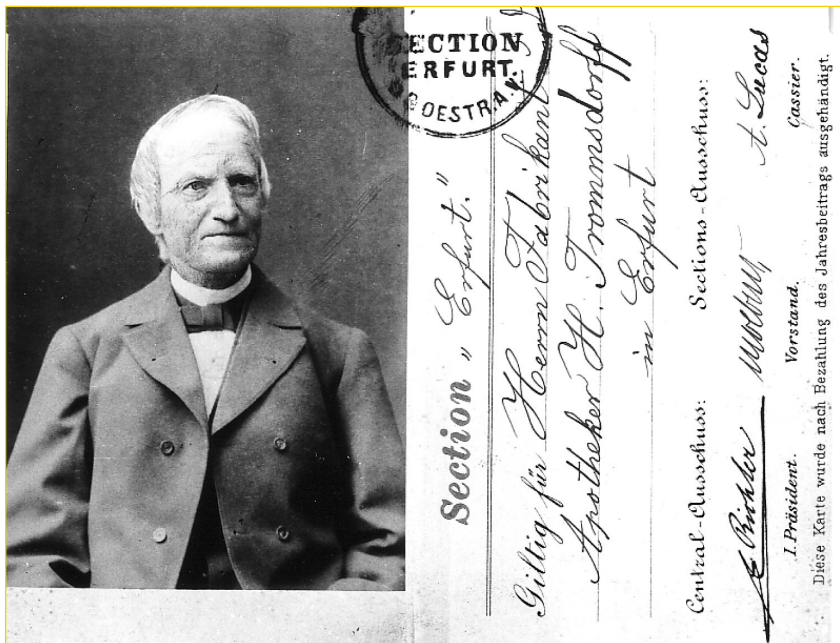 SECTION
ERFURT.
OESTR.A.V.
Section „Erfurt."
Giltig für Herrn Fabrikant
Apotheker H. Trommsdorff
in Erfurt
Central-Ausschuss: Sections-Ausschuss:
E Richter A. Lucas
I. Präsident. Vorstand. Cassier.
Diese Karte wurde nach Bezahlung des Jahresbeitrags ausgehändigt.